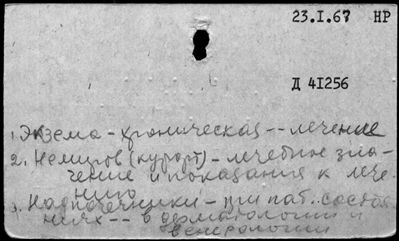 23.I.67 НР
Д 41256
1. Экзема - хроническая -- лечение
2. Немиров (курорт) - лечебное зна-
чение и показания к лече-
нию
3. Надпочечники - при пат. состоя-
ниях -- в дерматологии и
венерологии